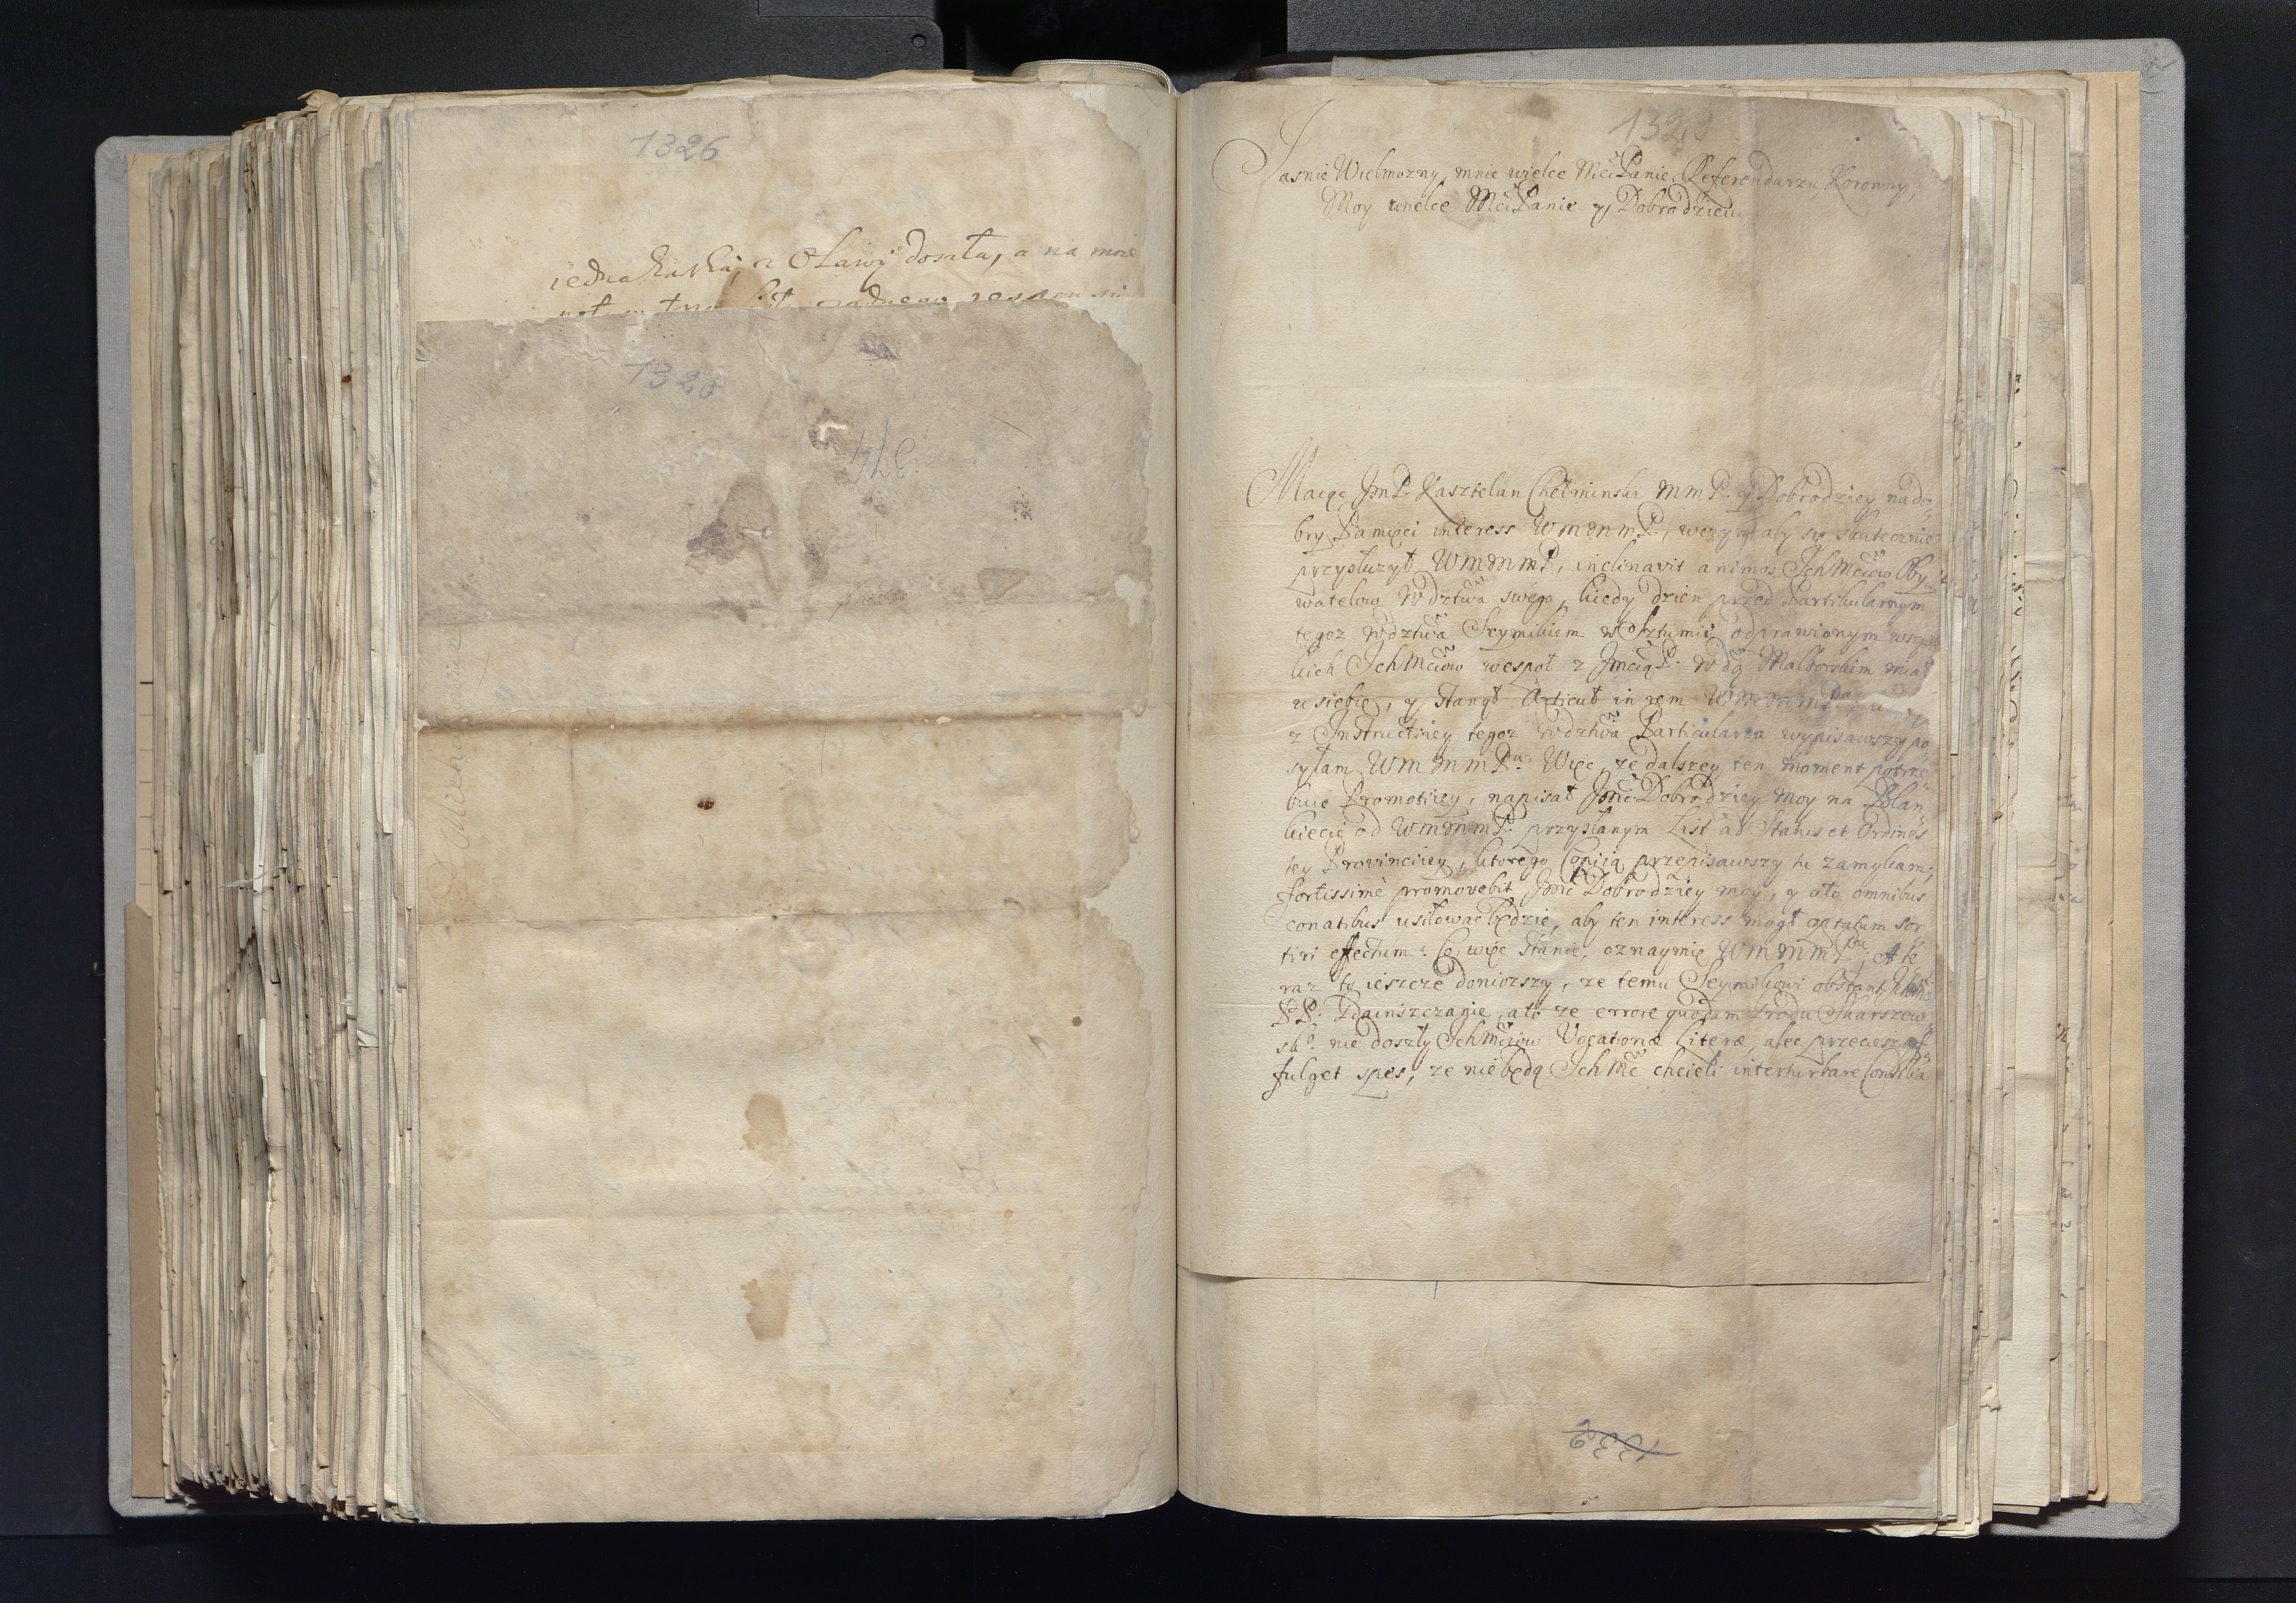 1326
iednak taką, z Oławÿ doszła, a na moie
żadnego respons
1328
374
1329
Jasnie Wielmozny, mnie wielce Mći Panie Referendarzu Koronny,
Moy wielce Mći Panie y Dobrodzieiu
Maiąc JmP. Kasztelan Chełminski MmP. y Dobrodziey nado„
bry Pamięci interess WMMmP., wczym aby się skutecznie
przysłuzył WMMmP., inclinavit animos IchMćiow Oby„
watelow Wdztwa swego, kiedy dzien przed Partikularnym
tegoz Wdztwa Seymikiem w Sztumie odprawionym wszyst
kich IchMćiow wespoł z JmćiąP. Wdą Malborskim miał
u siebie, y stanął Articuł in rem WMMmP.
z Instructiiey tegoz Wdztwa Particularza wypisawszy po„
syłam WMMmPu. Więc, ze dalszey ten moment potrze„
buie Promotiiey, napisał Jmć Dobrodziey moy na Blan„
kiecie od WMMmP. przysłanym List ad Status et Ordines
tey Provinciiey, ktorego Copiią przepisawszy tu zamykam;
fortissimè promovebit Jmć Dobrodziey moy, y oto omnibus
conatibus usiłowac będzie, aby ten interess mogł optatum sor„
tiri effectum. Co więc stanie, oznaymię WMMmPnu; A te„
raz to ieszcze doniozszy, ze temu Seymikowi obstant IchMć
PP. Gdainszczanie, a to ze errore quodam Grodu Skarszew„
skº. nie doszły IchMćiow Vocatoriæ Literæ, alec przecie
fulget spes, ze niebędą IchMć chcieli interturbare Consilia
1332